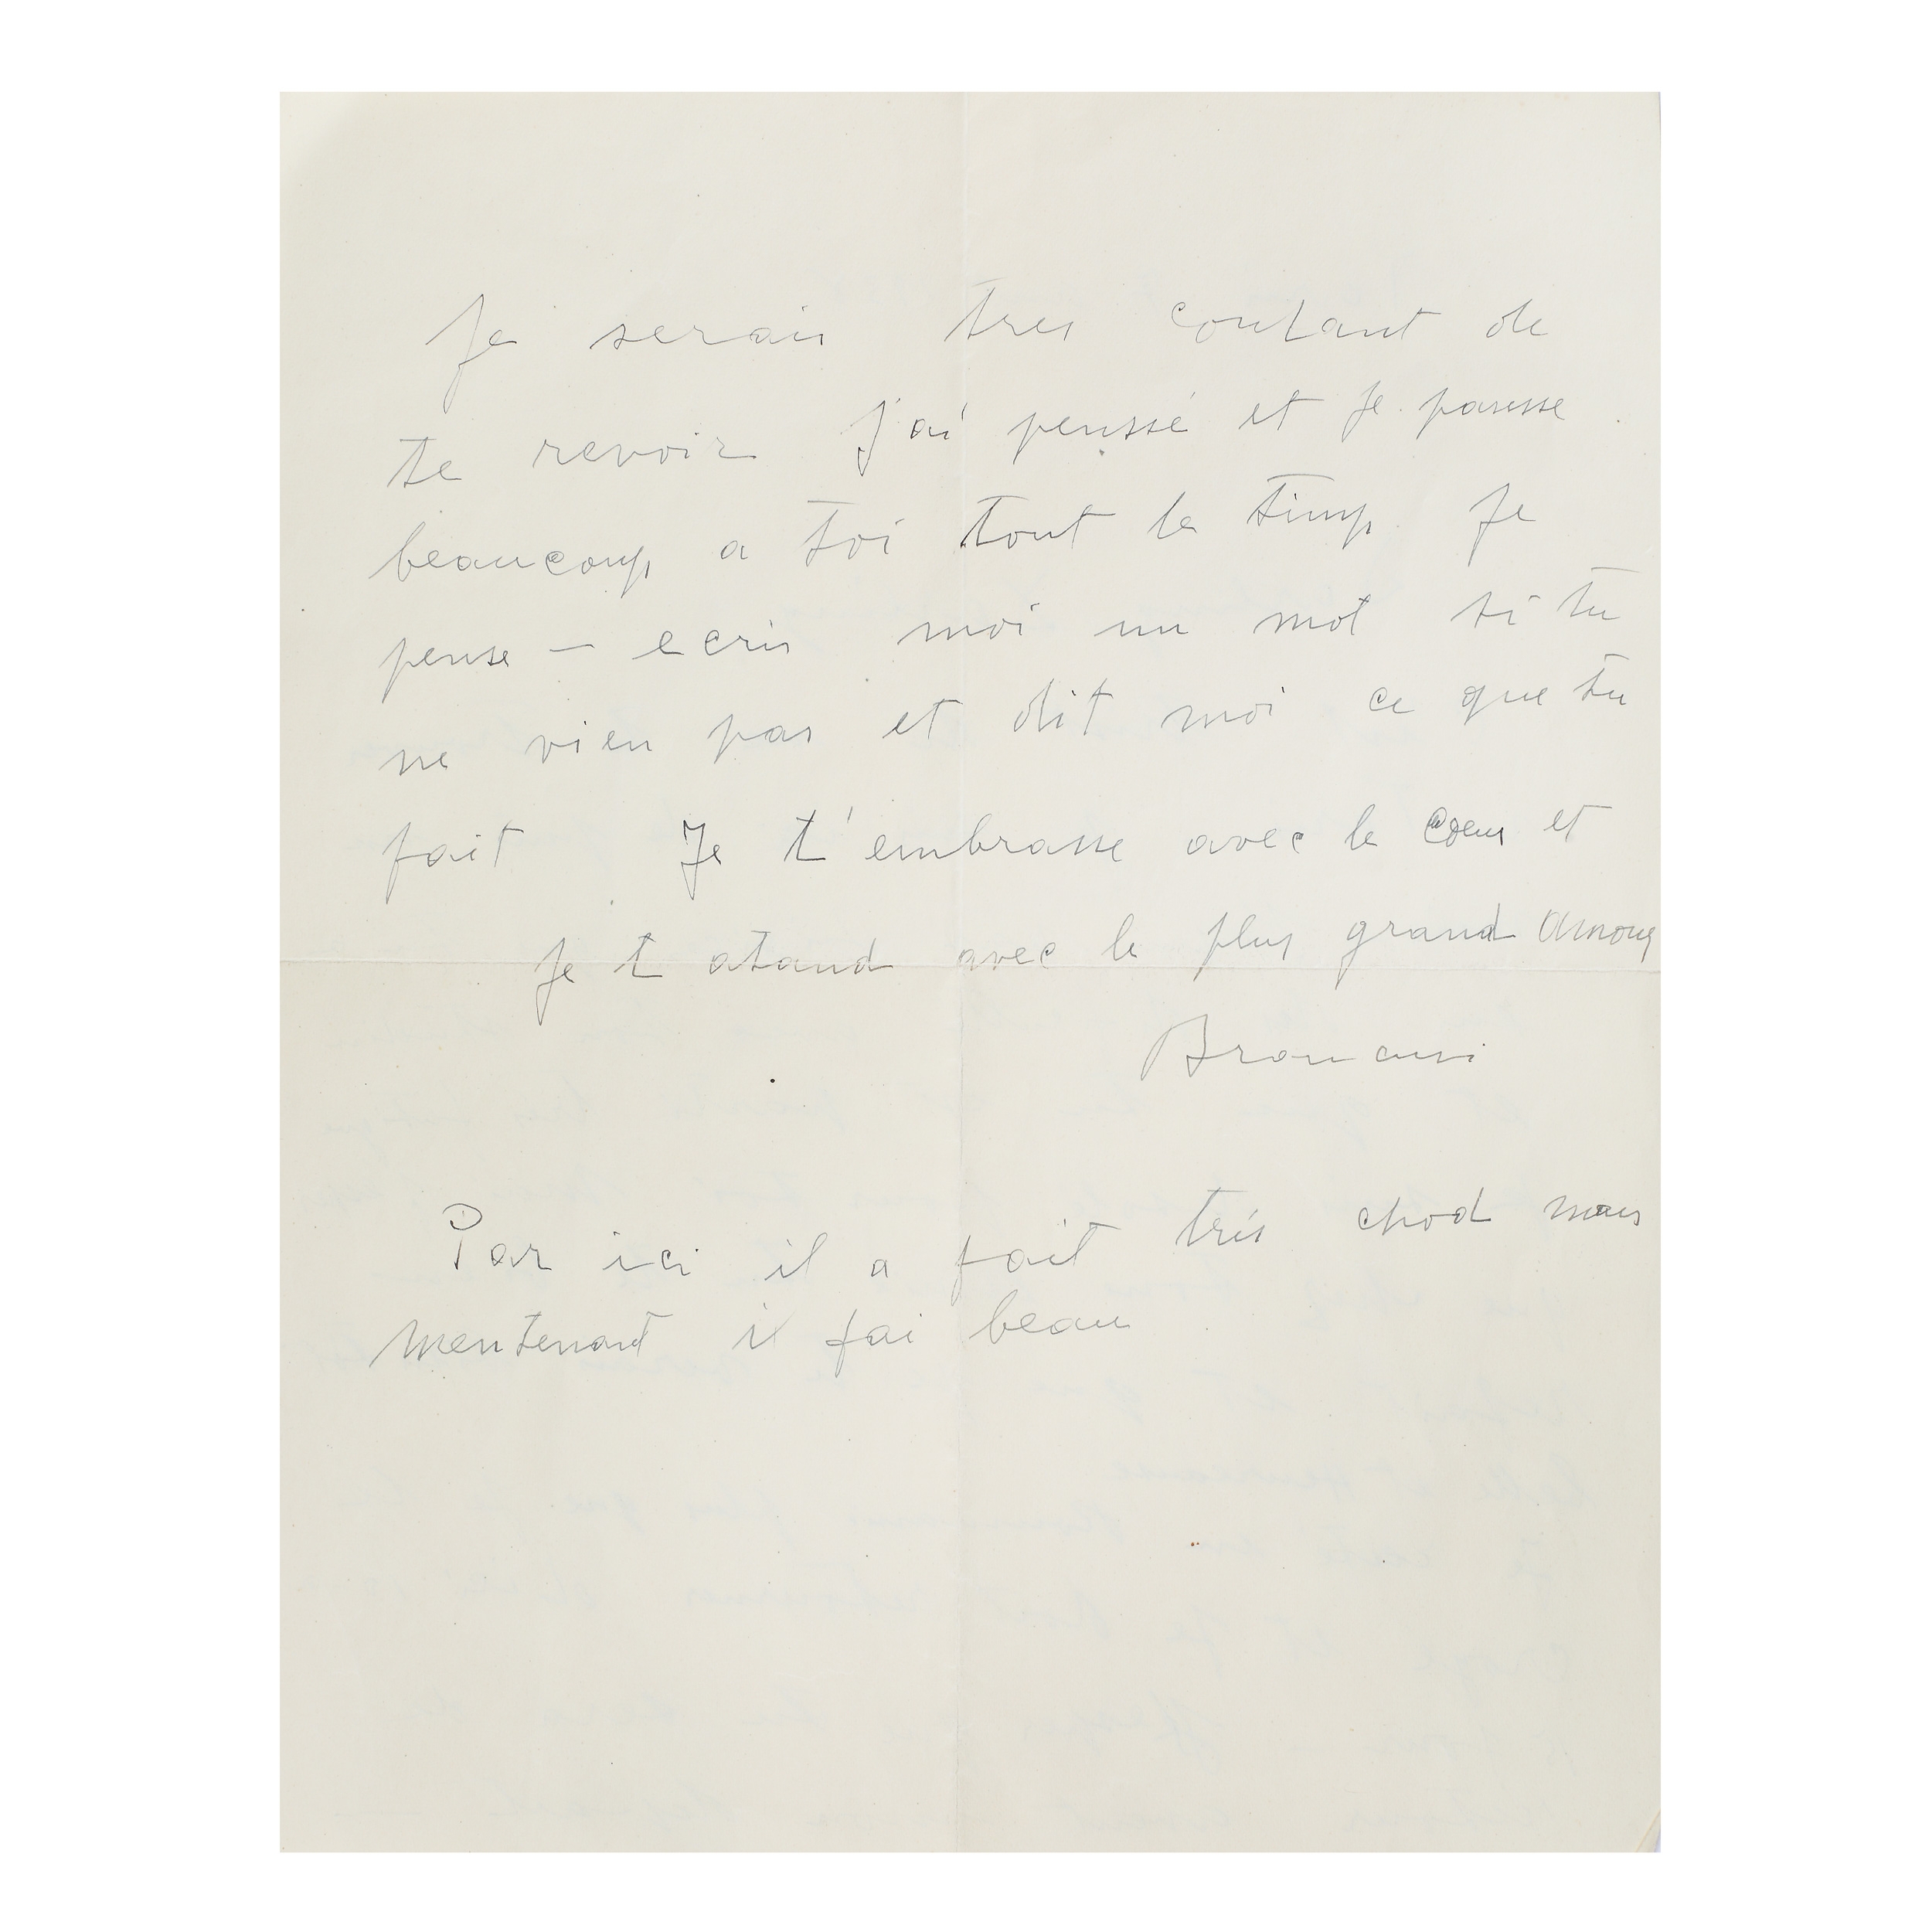 Je serais tres contant de
te revoir J'ai penssé et je pansse
beaucoup a toi tout le timp. Je
pense — ecris moi un mot si tu
ne vien pas et dit moi ce que tu
fait Je t'embrasse avec le coeur et
Je t atand avec le plus grand amour
Brancusi
Par ici il a fait trés chod mais
mentenant il fai beau